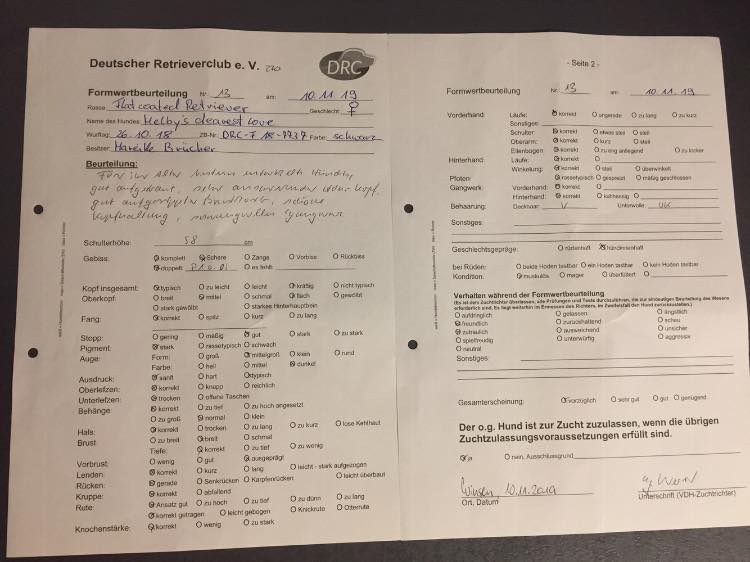 Deutscher Retrieverclub e. V.
DRC
Formwertbeurteilung Nr. 13 am: 10.11.19
Rasse: Flatcoated Retriever Geschlecht: ♀
Name des Hundes: Melby's dearest Love
Wurftag: 26.10.18 ZB-Nr: DRC-F 18- Farbe: schwarz
Besitzer: Mareike Brücher
Beurteilung:
Für ihr Alter entwickelte Hündin
gut aufgebaut, sehr edler Kopf,
gut, schöne
Kopfhaltung,
Schulterhöhe: 58 cm
Gebiss: komplett Schere Zange Vorbiss Rückbiss
doppelt P1 es fehlt:
Kopf insgesamt: typisch zu leicht leicht kräftig nicht typisch
Oberkopf: breit mittel schmal flach gewölbt
stark gewölbt starkes Hinterhauptbein
Fang: korrekt spitz kurz zu lang
Stopp: gering mäßig gut stark zu stark
Pigment: stark rassetypisch schwach
Auge: Form: groß mittelgroß klein rund
Farbe: hell mittel dunkel
Ausdruck: sanft hart typisch
Oberlefzen: korrekt knapp reichlich
Unterlefzen: trocken offene Taschen
Behänge: korrekt zu tief zu hoch angesetzt
zu groß normal klein
Hals: korrekt trocken zu lang zu kurz lose Kehlhaut
Brust: zu breit breit schmal
Tiefe: korrekt zu tief zu wenig
Vorbrust: wenig gut ausgeprägt
Lenden: korrekt kurz lang leicht - stark aufgezogen
Rücken: gerade Senkrücken Karpfenrücken leicht überbaut
Kruppe: korrekt abfallend
Rute: Ansatz gut zu hoch zu tief zu dünn zu lang
korrekt getragen leicht gebogen Knickrute Otterrute
Knochenstärke: korrekt wenig zu stark
- Seite 2 -
Formwertbeurteilung Nr. 13 am: 10.11.19
Vorderhand: Läufe: korrekt ungerade zu lang zu kurz
Sonstiges:
Schulter: korrekt etwas steil steil
Oberarm: korrekt kurz steil
Ellenbogen: korrekt zu eng anliegend zu locker
Hinterhand: Läufe: korrekt
Winkelung: korrekt steil überwinkelt
Pfoten: rassetypisch gespreizt mäßig geschlossen
Gangwerk: Vorderhand: korrekt
Hinterhand: korrekt kuhhessig
Behaarung: Deckhaar: V Unterwolle:
Sonstiges:
Geschlechtsgepräge: rüdenhaft hündinnenhaft
bei Rüden: beide Hoden tastbar ein Hoden tastbar kein Hoden tastbar
Kondition: muskulös mager überfüttert
Verhalten während der Formwertbeurteilung
aufdringlich gelassen ängstlich
freundlich zurückhaltend scheu
zutraulich ausweichend unsicher
spielfreudig unterwürfig aggressiv
neutral
Sonstiges:
Gesamterscheinung: vorzüglich sehr gut gut genügend
Der o.g. Hund ist zur Zucht zuzulassen, wenn die übrigen
Zuchtzulassungsvoraussetzungen erfüllt sind.
ja nein, Ausschlussgrund
Winsen, 10.11.2019
Ort, Datum Unterschrift (VDH-Zuchtrichter)